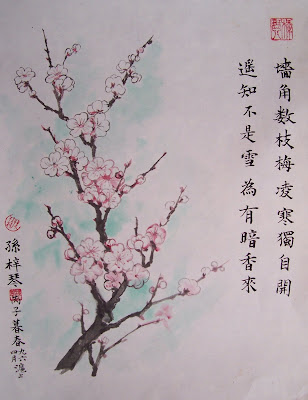 墻角数枝梅凌寒獨自開
遥知不是雪 為有暗香來
孫梓琴
丙子暮春
九六
四月
滬上